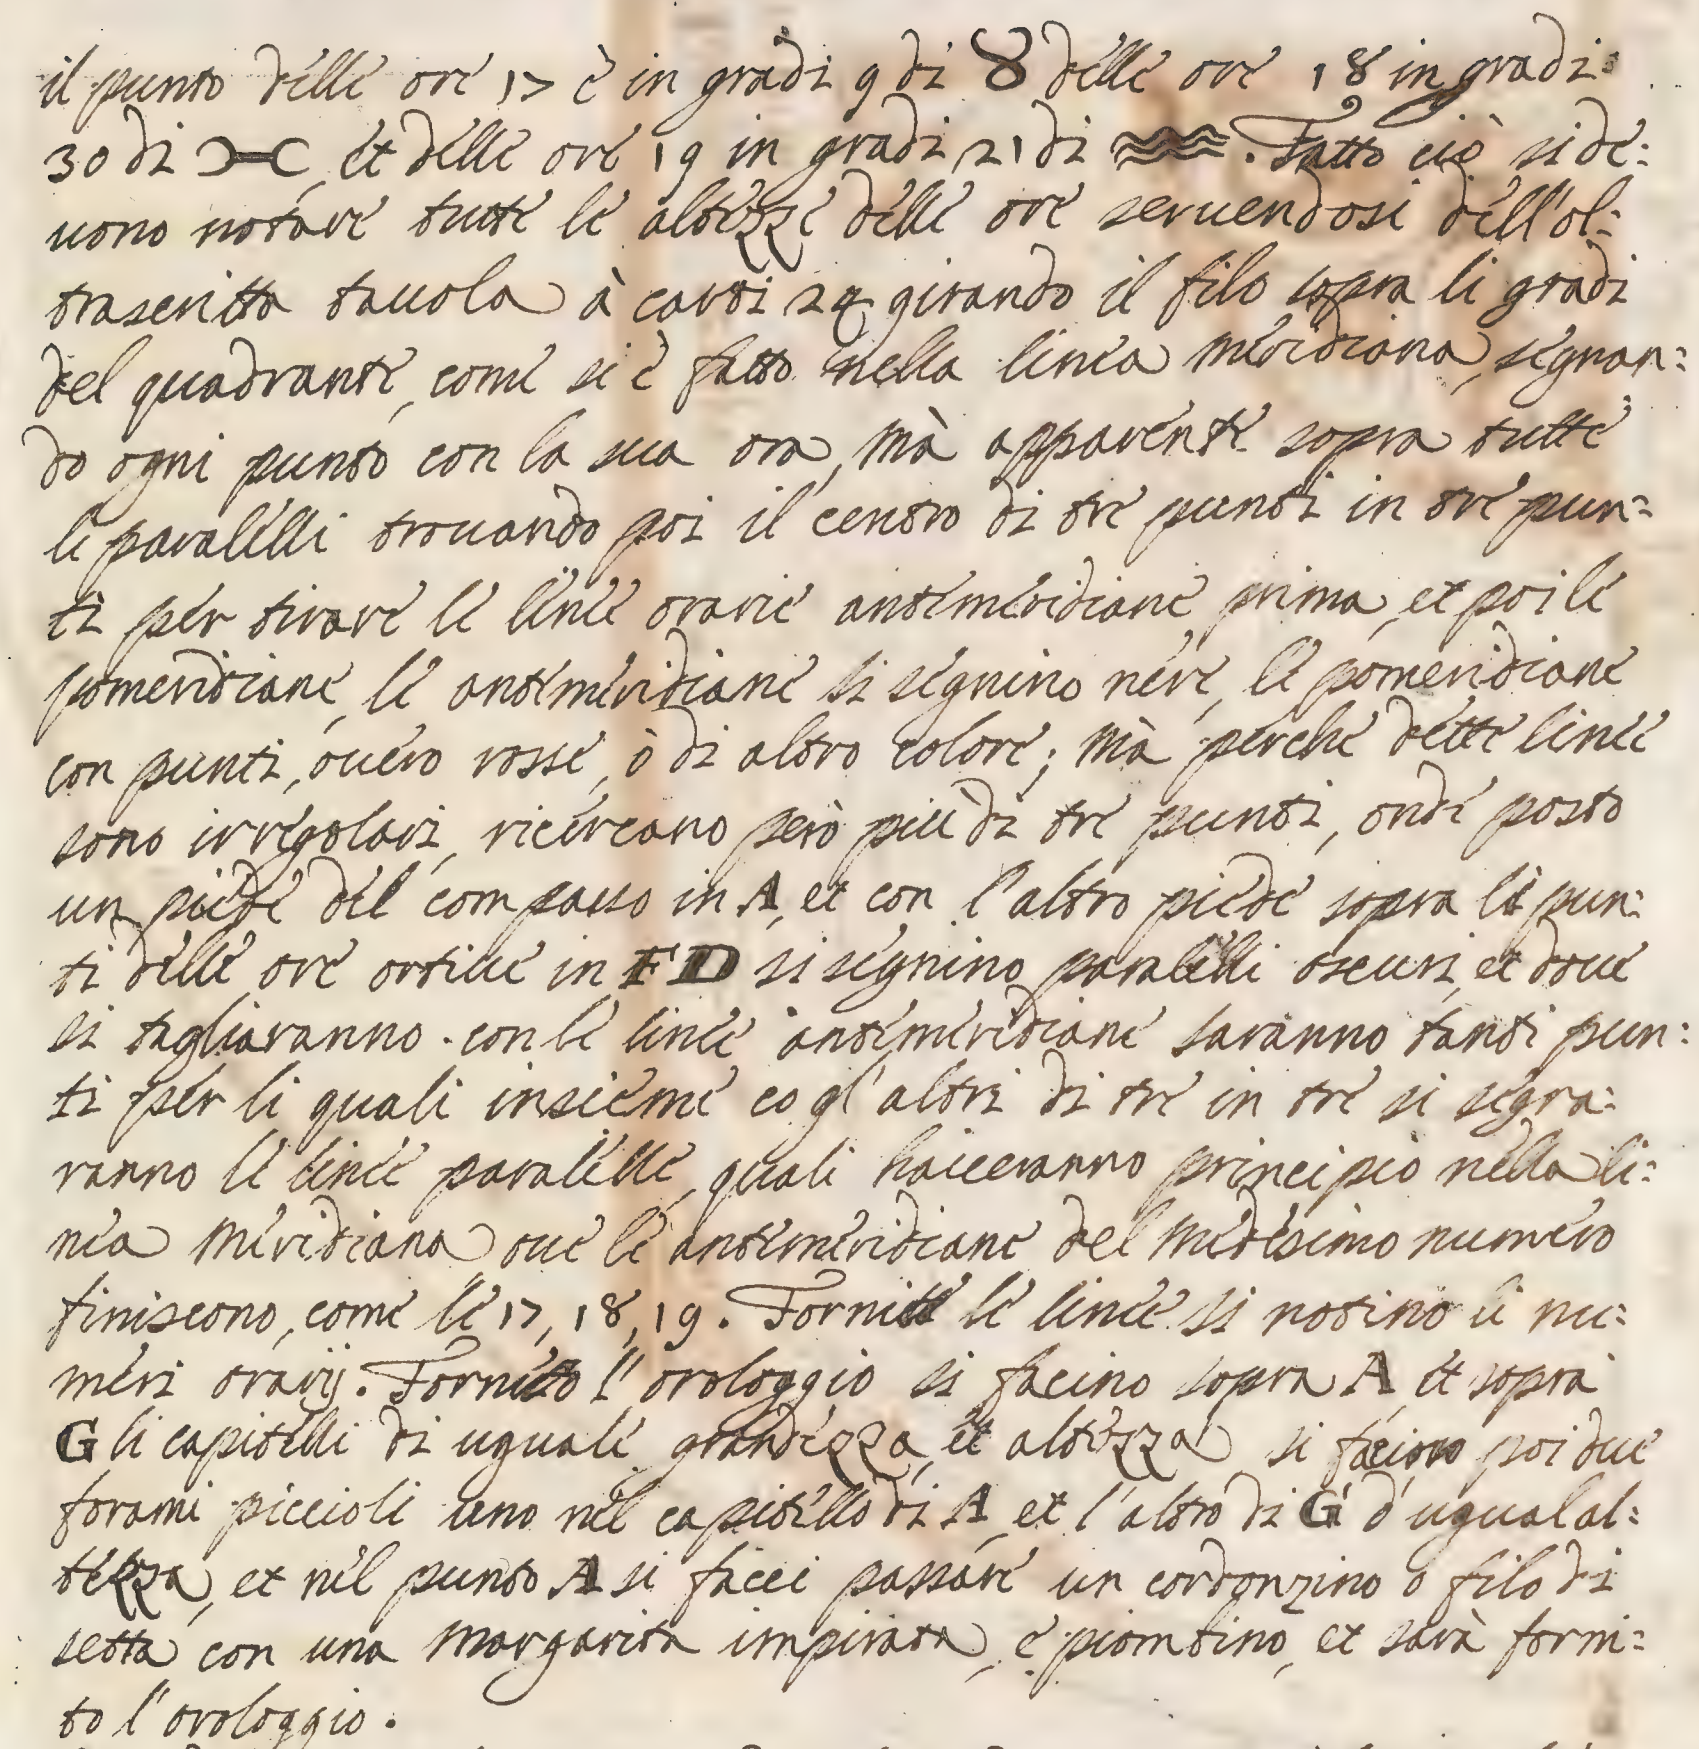 il punto delle ore 17 è in gradi 9 di ♉ delle ore 18 in gradi
30 di ♓, et delle ore 19 in gradi 21 di ♒. Fatto ciò si de:
uono notare tutte le altezze delle ore seruendosi dell'ol:
trascritta tauola à carti 24 girando il filo sopra li gradi
del quadrante, come si è fatto nella linea meridiana, segnan:
do ogni punto con la sua ora, mà apparente sopra tutte
le paralelli trouando poi il centro di tre punti in tre pun:
ti per tirare le linee orarie antemeridiane prima, et poi le
pomeridiane, le antemeridiane si segnino nere, le pomeridiane
con punti, ouero rosse, ò di altro colore; mà perche dette linee
sono irregolari, ricercano però più di tre punti, onde posto
un piede del compasso in A, et con l'altro piede sopra li pun:
ti delle ore ortiue in F D si segnino paralelli oscuri, et doue
si tagliaranno con le linee antemeridiane saranno tanti pun:
ti per li quali insieme co gl'altri di tre in tre si segna:
ranno le linee paralelle, quali haueranno principio nella li:
nea meridiana oue le antemeridiane del medesimo numero
finiscono, come le 17, 18, 19. Fornite le linee si notino li nu:
meri orarij. Fornito l'orologgio si facino sopra A et sopra
G li capitelli di uguale grandezza, et altezza si facino poi due
forami piccioli uno nel capitello di A, et l'altro di G d'ugual al:
tezza, et nel punto A si facci passare un cordonzino o filo di
setta con una margarita impirata, e piombino, et sarà forni:
to l'orologgio.